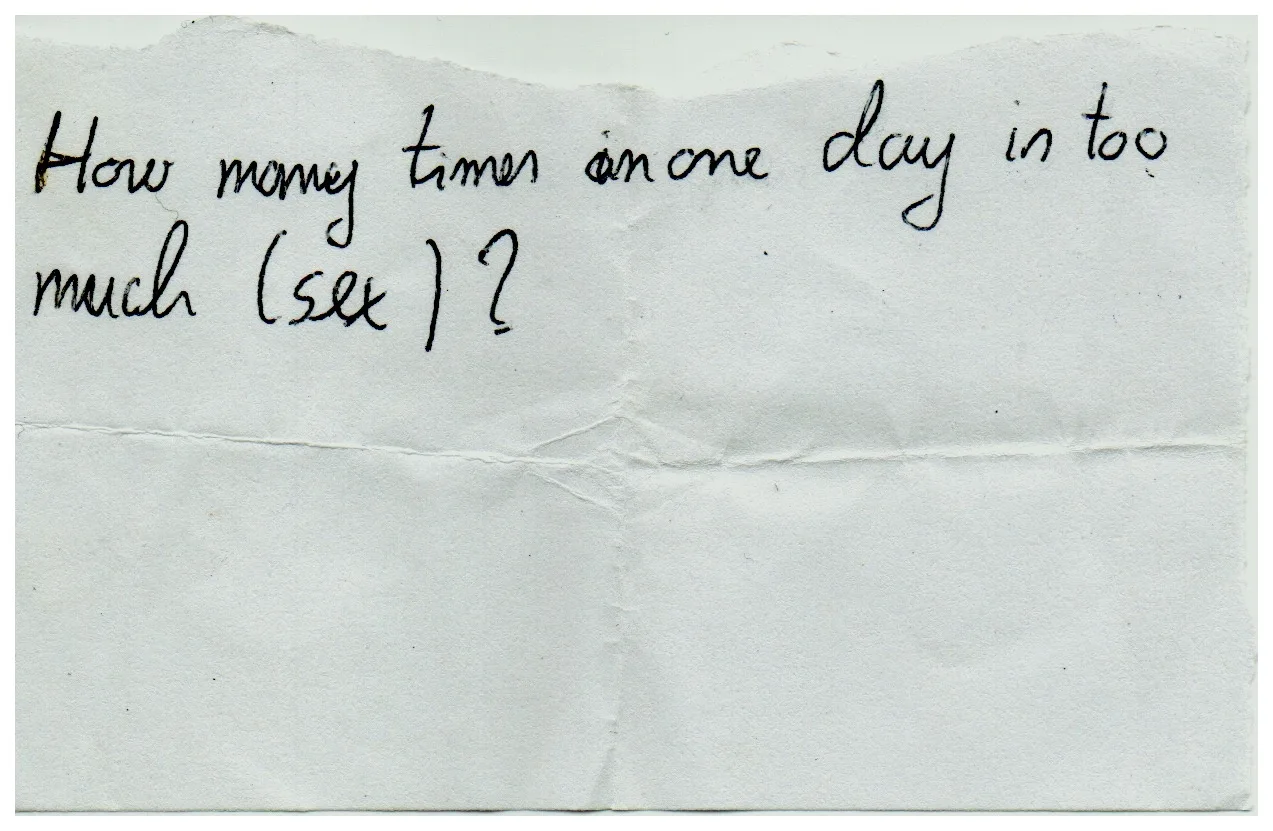 How many times in one day is too
much (sex)?